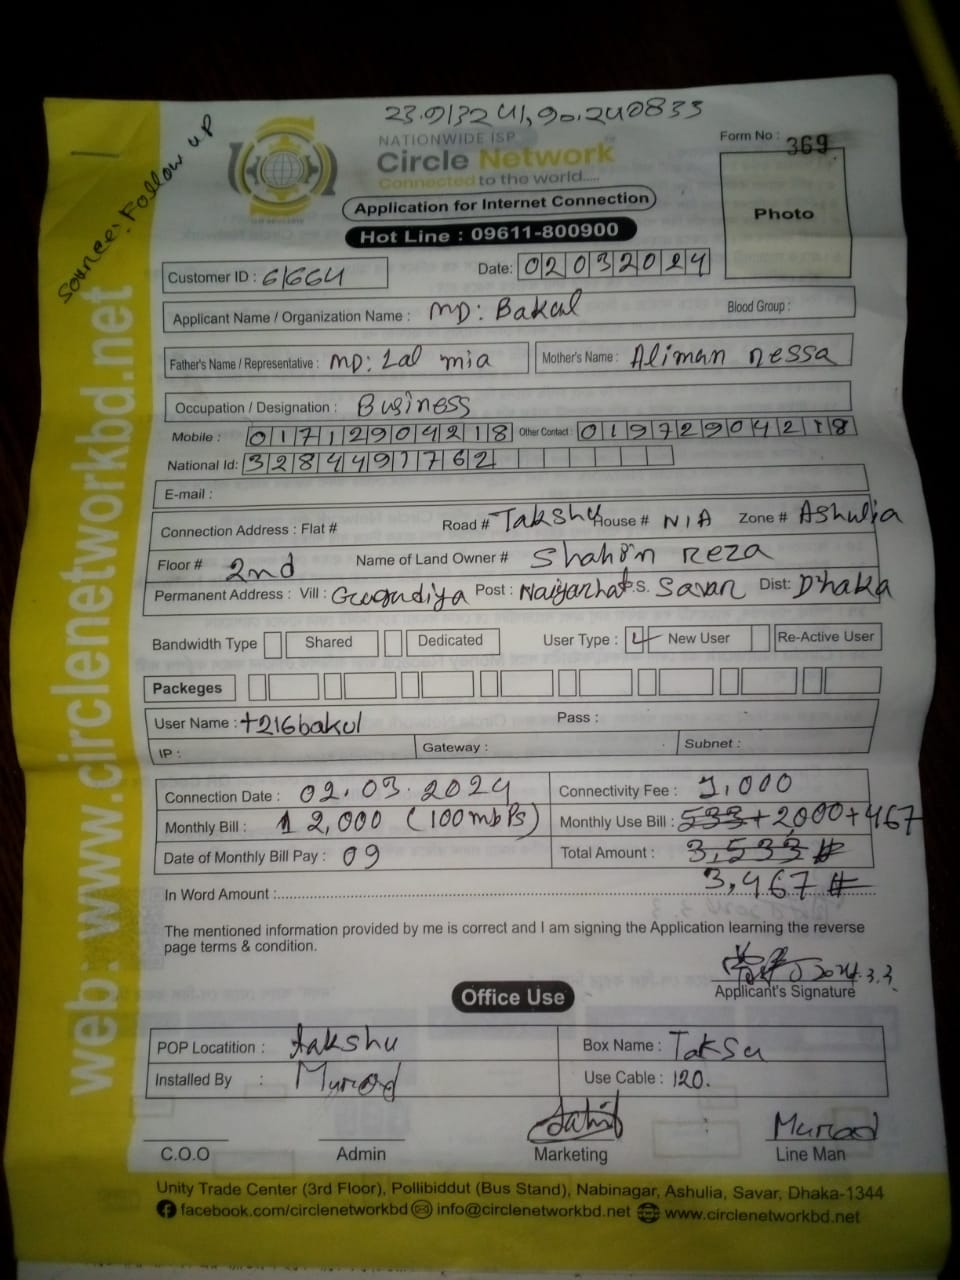 23.913241,90.240833
Source: Follow up
NATIONWIDE ISP
Circle Network
Connected to the world.....
Form No : 369
Photo
Application for Internet Connection
Hot Line : 09611-800900
Customer ID : 61664 Date: 02032024
Applicant Name / Organization Name : MD: Bakul Blood Group :
Father's Name / Representative : MD: Lal mia Mother's Name : Aliman nessa
Occupation / Designation : Business
Mobile : 01712904218 Other Contact : 01972904218
National Id: 3284491762
E-mail :
Connection Address : Flat # Road # Takshu House # N/A Zone # Ashulia
Floor # 2nd Name of Land Owner # Shahin Reza
Permanent Address : Vill : Gugudiya Post : Naiyarhat P.S. Savar Dist: Dhaka
Bandwidth Type Shared Dedicated User Type : New User Re-Active User
Packeges
User Name : t216bakul Pass :
IP : Gateway : Subnet :
Connection Date : 02.03.2024 Connectivity Fee : 1,000
Monthly Bill : 2,000 (100mbPs) Monthly Use Bill : 533+2,000+467
Date of Monthly Bill Pay : 09 Total Amount : 3,533 #
In Word Amount :........ 3,467 #
The mentioned information provided by me is correct and I am signing the Application learning the reverse
page terms & condition.
2024.3.2
Applicant's Signature
Office Use
POP Locatition : takshu Box Name : Taksu
Installed By : Muraod Use Cable : 120.
Muraod
C.O.O Admin Marketing Line Man
Unity Trade Center (3rd Floor), Pollibiddut (Bus Stand), Nabinagar, Ashulia, Savar, Dhaka-1344
facebook.com/circlenetworkbd info@circlenetworkbd.net www.circlenetworkbd.net
web: www.circlenetworkbd.net